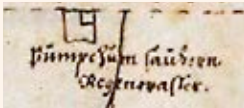 Pumpe zum sauberen
Regenwasser.